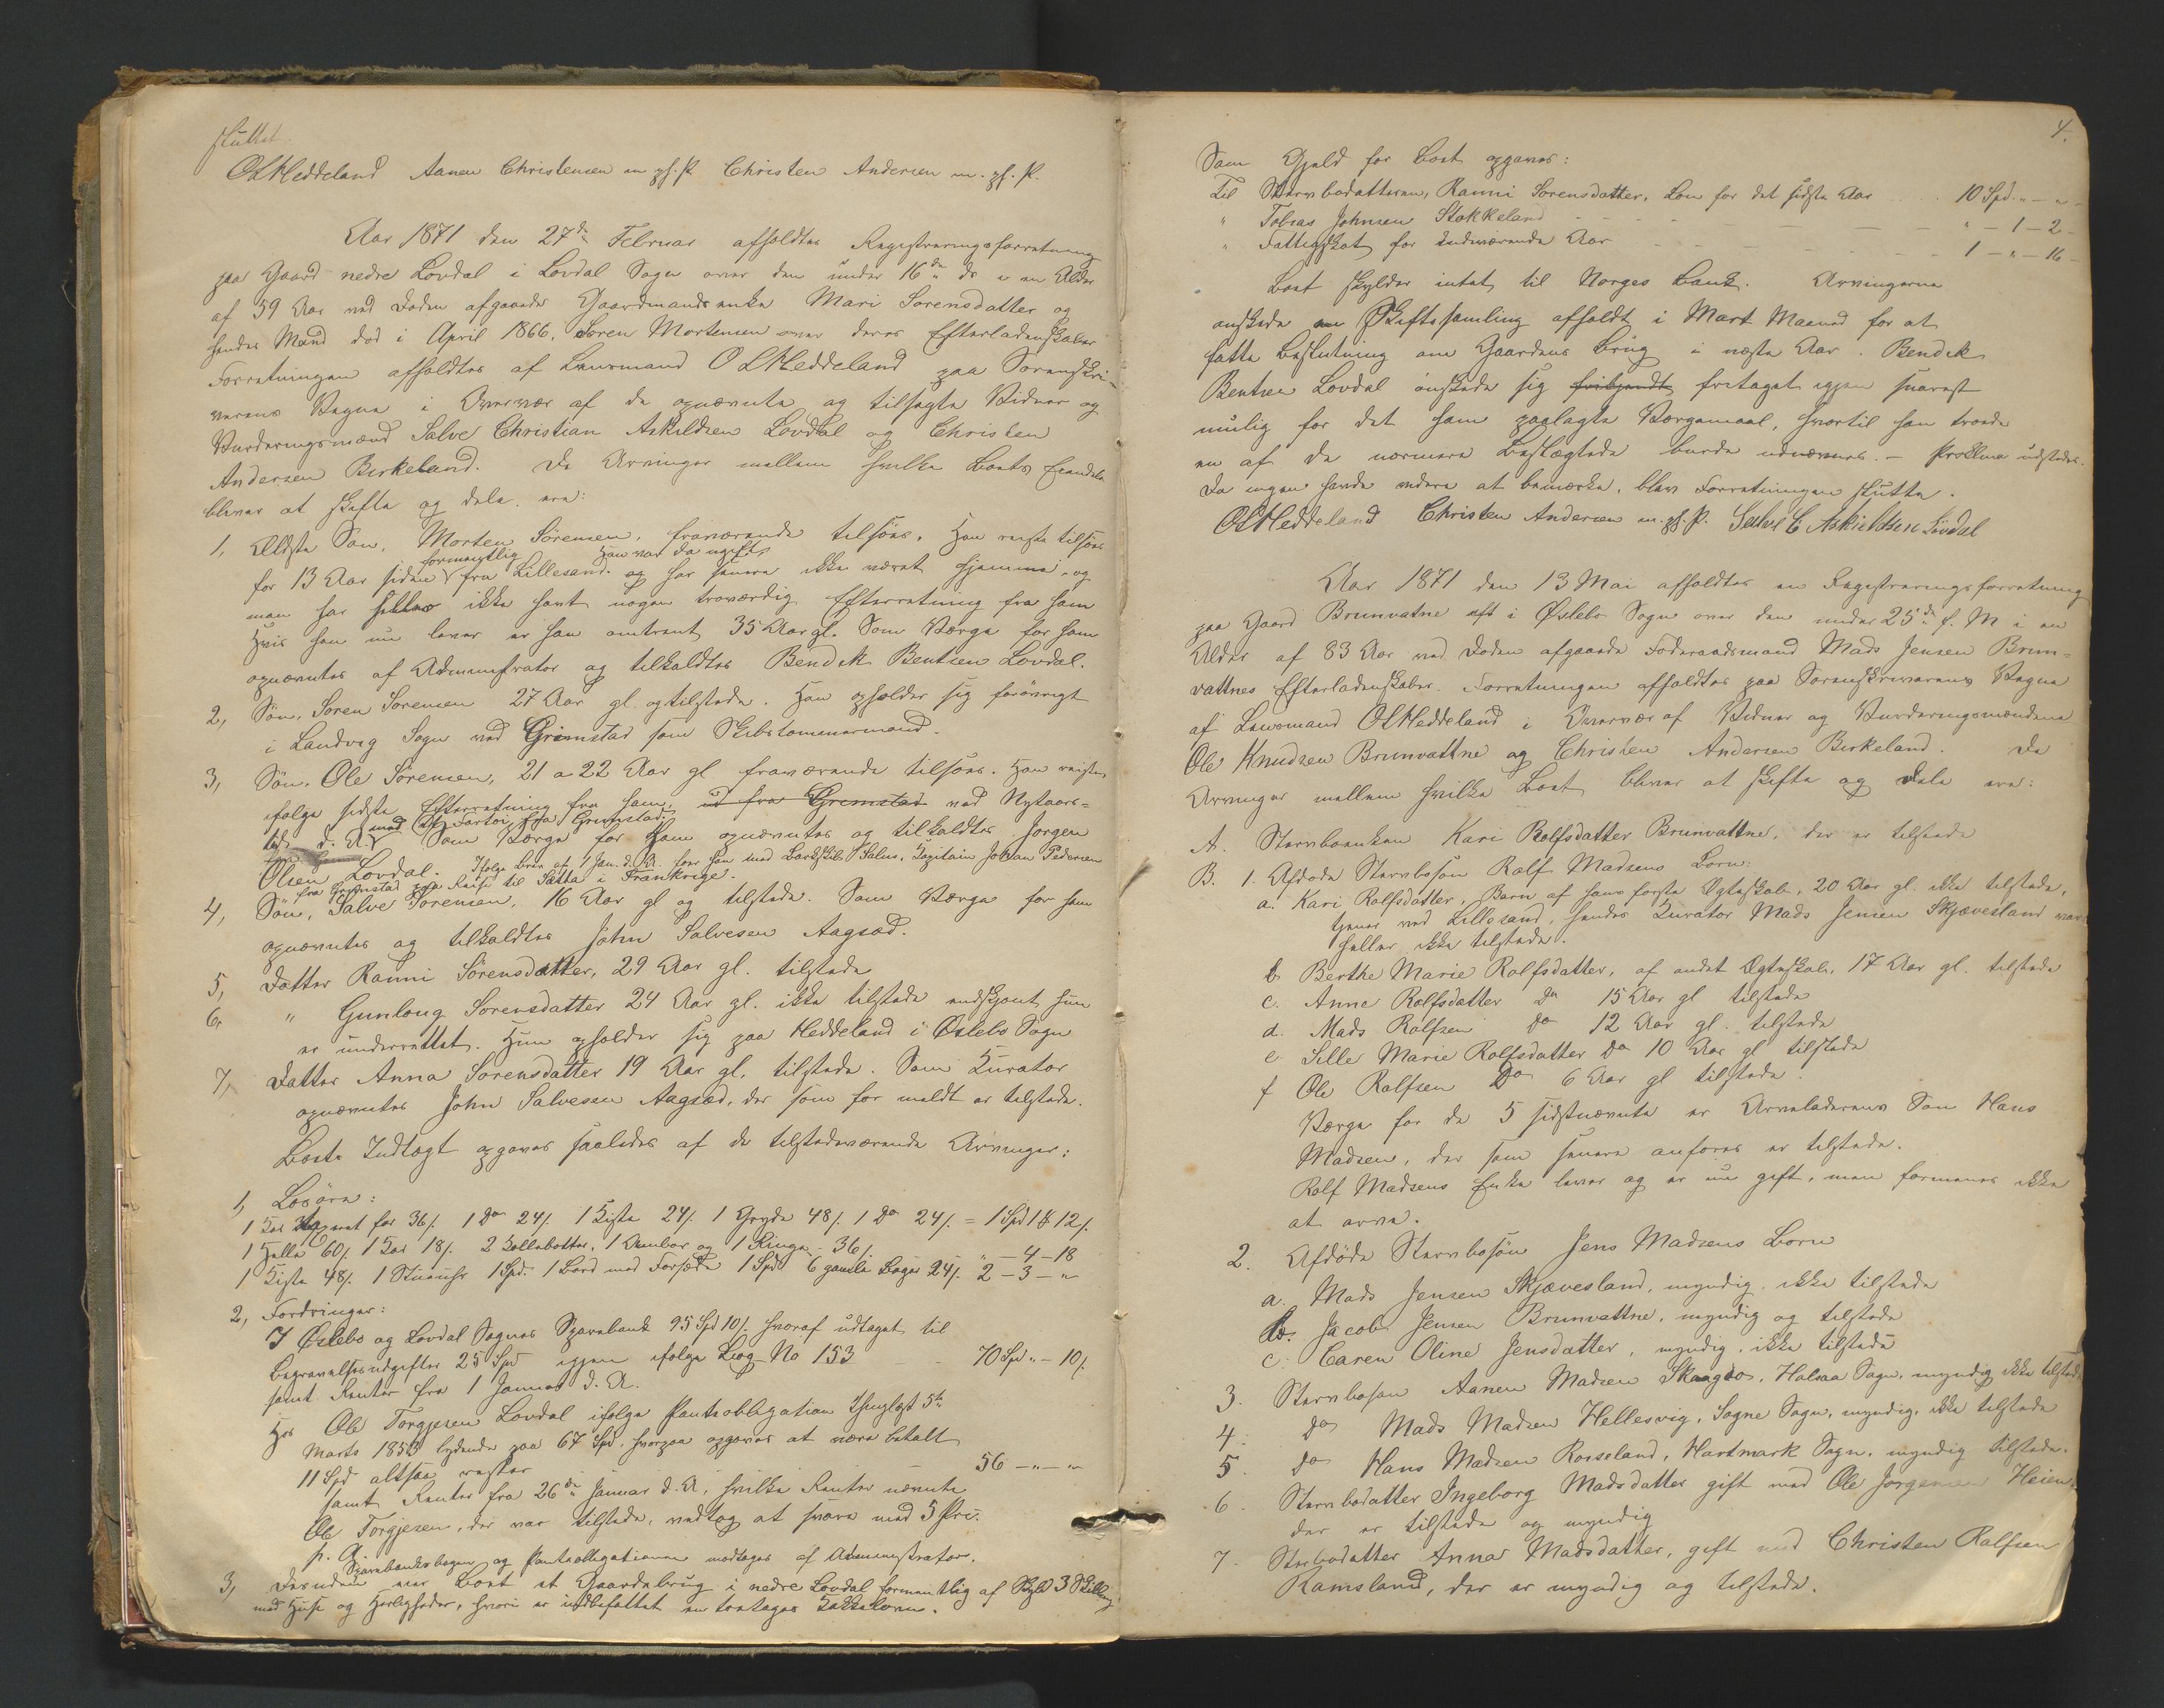 sluttet.
OLHeddeland Aanen Christensen m. p. f. P. Christen Andersen m. p. f. P.
Aar 1871 den 27de Februar afholdtes Registreringsforretning
paa Gaard nedre Lovdal i Lovdal Sogn over den under 16de ds i en Alder
af 59 Aar ved Døden afgaaede Gaardmandsenke Mari Sorensdatter og
hendes Mand død i April 1866, Soren Mortensen over deres Efterladenskaber
Forretningen afholdtes af Lensmand OLHeddeland paa Sorenskri-
verens Vegne i Overvær af de opnævnte og tilsagte Vidner og
Vurderingsmænd Salve Christian Askildsen Lovdal og Christen
Andersen Birkeland. De Arvinger mellem hvilke Boets Eiendele
bliver at skifte og dele ere:
1, Ældste Søn, Morten Sörensen, fraværende tilsøes. Han reiste tilsøes
formentlig Han var da ugift
for 13 Aar siden fra Lillesand og har senere ikke været hjemme, og
man har heller ikke havt nogen troværdig Efterretning fra ham
Hvis han nu lever er han omtrent 35 Aar gl. Som Værge for ham
opnævntes af Administrator og tilkaldtes Bendik Bentsen Lovdal.
2, Søn, Soren Sorensen 27 Aar gl og tilstede. Han opholder sig forøvrigt
i Landvig Sogn ved Grimstad som Skibstømmermand.
3, Søn, Ole Sörensen, 21 a 22 Aar gl fraværende tilsøes. Han reiste,
ifølge sidste Efterretning fra ham, ud fra Grimstad ved Nytaars-
med et Fartøi fra Grimstad.
tid d. A. Som Værge for ham opnævntes og tilkaldtes Jorgen
Olsen Lovdal. Ifølge Brev af 1 Jan. d. A. foer han med Barkskib Salus, Kapitain Johan Pedersen
fra Grimstad paa Reise til Sætta i Frankrige.
4, Søn, Salve Sorensen, 16 Aar gl og tilstede. Som Værge for ham
opnævntes og tilkaldtes John Salvesen Aagsæd.
5, Datter Ranni Sörensdatter, 29 Aar gl. tilstede
6, " Gunloug Sorensdatter 24 Aar gl. ikke tilstede endskjønt hun
er underrettet. Hun opholder sig paa Heddeland i Øslebo Sogn
7, Datter Anna Sorensdatter 19 Aar gl. tilstede. Som Kurator
opnævntes John Salvesen Aagsæd, der som før meldt er tilstede.
Boets Indtægt opgaves saaledes af de tilstedeværende Arvinger:
1, Løsøre:
1 Kar 36/. 1 Do 24/. 1 Kiste 24/. 1 Gryde 48/. 1 Do 24/. = 1 Spd 1 12/.
1 Helle 60/. 1 Kar 18/. 2 Kollebøtter, 1 Ambar og 1 Ringe 36/. " – 4 – 18
1 Kiste 48/. 1 Stueuhr 1 Spd. 1 Bord med Forsæde 1 Spd 6 gamle Bøger 24/. 2 – 3 – "
2, Fordringer:
I Øslebo og Lovdal Sognes Sparebank 95 Spd 10/. hvoraf udtaget til
Begravelsesudgifter 25 Spd igjen ifølge Bog No 153 70 Spd " – 10/.
samt Renter fra 1 Januar d. A.
Hos Ole Torgjesen Lovdal ifølge Panteobligation thinglæst 5te
Marts 1853 lydende paa 67 Spd, hvorpaa opgaves at være betalt
11 Spd altsaa rester 56 – " – "
samt Renter fra 26de Januar d. A, hvilke Renter nævnte
Ole Torgjesen, der var tilstede, vedtog at svare med 5 Prc.
p. A.
Sparebanksbogen og Panteobligationen modtages af Administrator.
3, Desuden eier Boet et Gaardsbrug i nedre Lovdal formentlig af Skyld 3 Skilling
med Huse og Herligheder, hvori er indbefattet en
4.
Som Gjeld for Boet opgaves:
Til Stervbodatteren, Ranni Sorensdatter, Løn for det sidste Aar 10 Spd. " – "
" Tobias Johnsen Stokkeland " – 1 – 2 –
" Fattigskat for indeværende Aar 1 – " – 16 –
Boet skylder intet til Norges Bank. Arvingerne
ønskede en Skiftesamling afholdt i Mart Maaned for at
fatte Beslutning om Gaardens Brug i næste Aar. Bendik
Bentsen Lovdal ønskede sig fritaget igjen snarest
mulig for det ham paalagte Værgemaal, hvortil han troede
en af de nærmere Beslægtede burde udnævnes. – Proklma udstedes.
Da ingen havde videre at bemærke, blev Forretningen sluttet.
OLHeddeland Christen Andersen m. p. f. P. Salve C Askieldsen Lövdal
Aar 1871 den 13 Mai afholdtes en Registreringsforretning
paa Gaard Brunvatne i Øslebo Sogn over den under 25de f. M i en
Alder af 83 Aar ved Døden afgaaede Føderaadsmand Mads Jensen Brun-
vattnes Efterladenskaber. Forretningen afholdtes paa Sorenskriverens Vegne
af Lensmand OLHeddeland i Overvær af Vidner og Vurderingsmændene
Ole Knudsen Brunvattne og Christen Andersen Birkeland. De
Arvinger mellem hvilke Boet bliver at skifte og dele ere:
A. Stervboenken Kari Rolfsdatter Brunvattne, der er tilstede
B. 1. Afdøde Stervbosøn Rolf Madsens Børn:
a. Kari Rolfsdatter, Barn af hans første Ægteskab, 20 Aar gl. ikke tilstede,
tjener ved Lillesand, hendes Kurator Mads Jensen Skjævesland var
heller ikke tilstede.
b. Berthe Marie Rolfsdatter, af andet Ægteskab, 17 Aar gl. tilstede
c. Anne Rolfsdatter Do 15 Aar gl tilstede
d. Mads Rolfsen Do 12 Aar gl. tilstede
e. Sille Marie Rolfsdatter Do 10 Aar gl tilstede
f Ole Rolfsen Do 6 Aar gl tilstede.
Værge for de 5 sidstnævnte er Arveladerens Søn Hans
Madsen, der som senere anføres er tilstede.
Rolf Madsens Enke lever og er nu gift, men formenes ikke
at arve.
2. Afdøde Stervbosøn Jens Madsens Børn
a. Mads Jensen Skjævesland, myndig, ikke tilstede
b. Jacob Jensen Brunvattne, myndig og tilstede
c. Caren Oline Jensdatter, myndig, ikke tilstede
3. Stervbosøn Aanen Madsen Skaagbo, Halsaa Sogn, myndig ikke tilstede
4. Do Mads Madsen Hellesvig, Sogne Sogn, myndig, ikke tilstede
5. Do Hans Madsen Roiseland, Hartmark Sogn, myndig tilstede.
6. Stervbodatter Ingeborg Madsdatter gift med Ole Jorgensen Heien,
der er tilstede og myndig
7. Stervbodatter Anna Madsdatter, gift med Christen Rolfsen
Ramsland, der er myndig og tilstede.